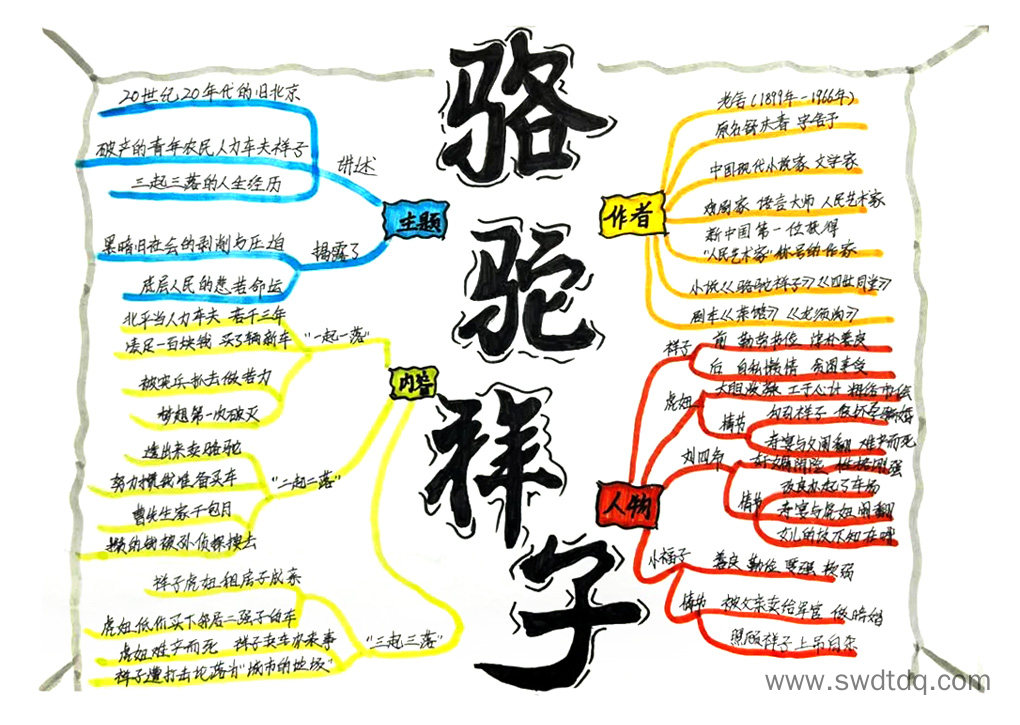 骆驼祥子
主题
讲述
20世纪20年代的旧北京
破产的青年农民人力车夫祥子
三起三落的人生经历
揭露了
黑暗旧社会的剥削与压迫
底层人民的悲苦命运
内容
"一起一落"
北平当人力车夫 苦干三年
凑足一百块钱 买了辆新车
被宪兵抓去做苦力
梦想第一次破灭
"二起二落"
逃出来卖骆驼
努力攒钱准备买车
曹先生家干包月
攒的钱被孙侦探搜去
"三起三落"
祥子虎妞租房子成亲
虎妞低价买下邻居二强子的车
虎妞难产而死 祥子卖车办丧事
祥子遭打击沦落为"城市的垃圾"
作者
老舍(1899年-1966年)
原名舒庆春 字舍予
中国现代小说家 文学家
戏剧家 语言大师 人民艺术家
新中国第一位获得
"人民艺术家"称号的作家
小说《骆驼祥子》《四世同堂》
剧本《茶馆》《龙须沟》
人物
祥子
前 勤劳 淳朴善良
后 自私懒惰
虎妞
大胆泼辣 工于心计 粗俗
情节
勾引祥子 假怀孕骗婚
寿宴与父闹翻 难产而死
刘四爷
性格刚强
情节
改良办起了车场
寿宴与虎妞闹翻
女儿的坟不知在哪
小福子
善良 勤俭 要强 软弱
情节
被父亲卖给军官 做暗娼
上吊自杀
www.swdtdq.com